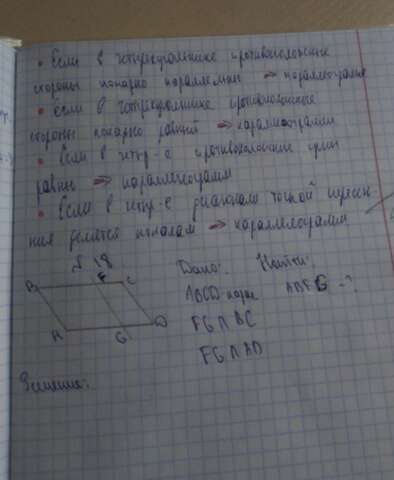 • Если в четырехугольнике противоположные
стороны попарно параллельны => параллелограмм
• если в четырехугольнике противоположные
стороны попарно равны => параллелограмм
• Если в четыр-е противоположные углы
равны => параллелограмм
• Если в четыр-е диагонали точкой пересече-
ния делятся пополам => параллелограмм
№ 18
Дано: Найти:
B F C
ABCD парал ABFG - ?
FG∩BC
A G D
FG∩AD
Решение: